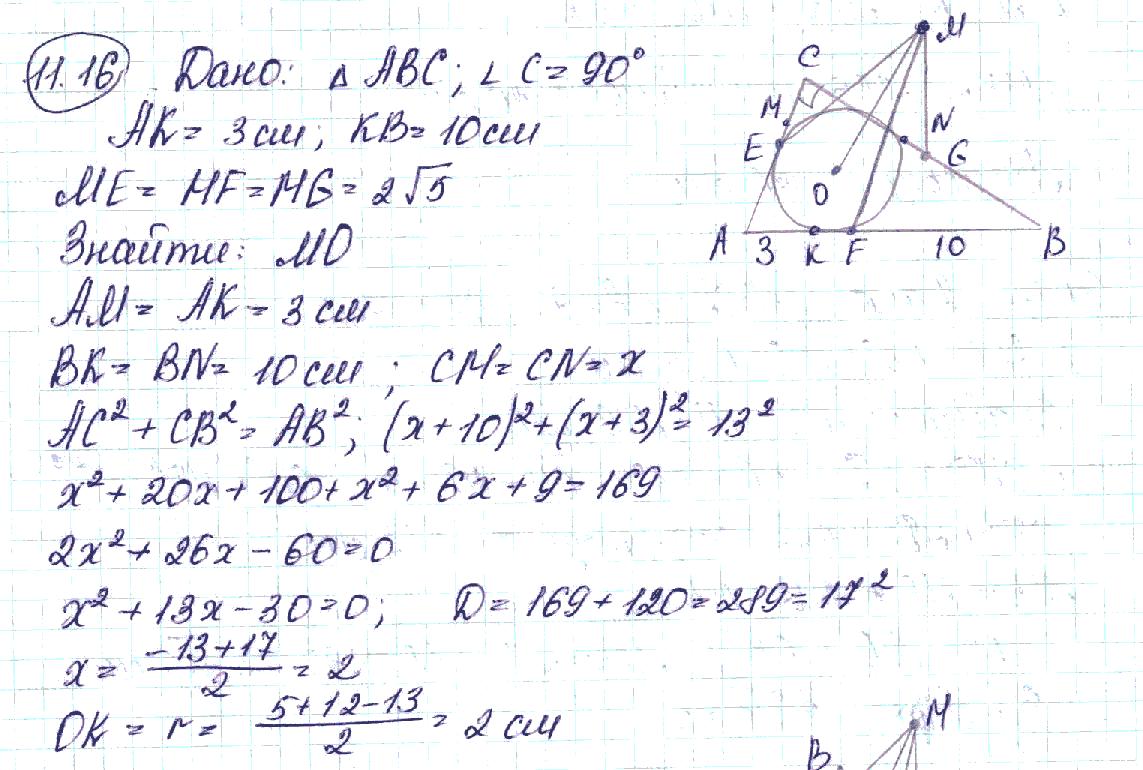 11.16 Дано: Δ ABC; ∠ C = 90°
AK = 3 см; KB = 10 см
ME = MF = MG = 2√5
Знайти: MO
AM = AK = 3 см
BK = BN = 10 см; CM = CN = x
AC² + CB² = AB²; (x+10)² + (x+3)² = 13²
x² + 20x + 100 + x² + 6x + 9 = 169
2x² + 26x - 60 = 0
x² + 13x - 30 = 0; D = 169 + 120 = 289 = 17²
x = (-13+17)/2 = 2
OK = r = (5+12-13)/2 = 2 см
M
C
M
N
E
G
O
A 3 K F 10 B
M
B